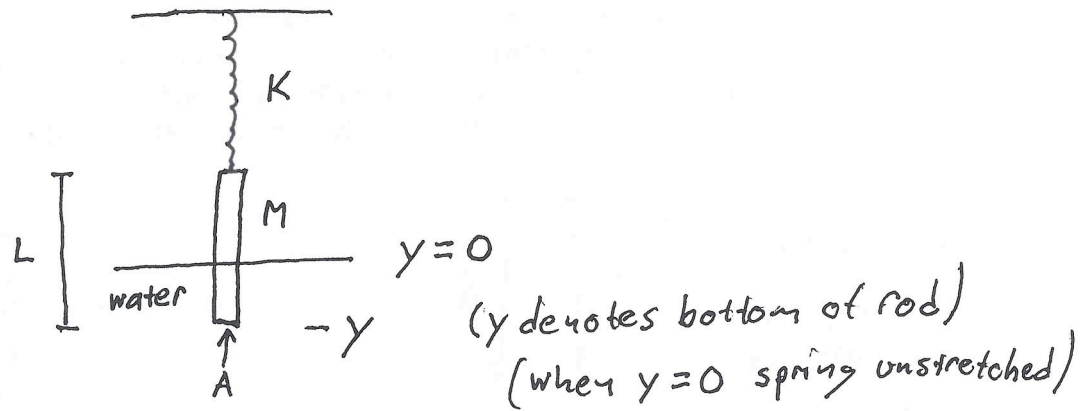 K
M
L
y = 0
water
- y
(y denotes bottom of rod)
A
(when y = 0 spring unstretched)